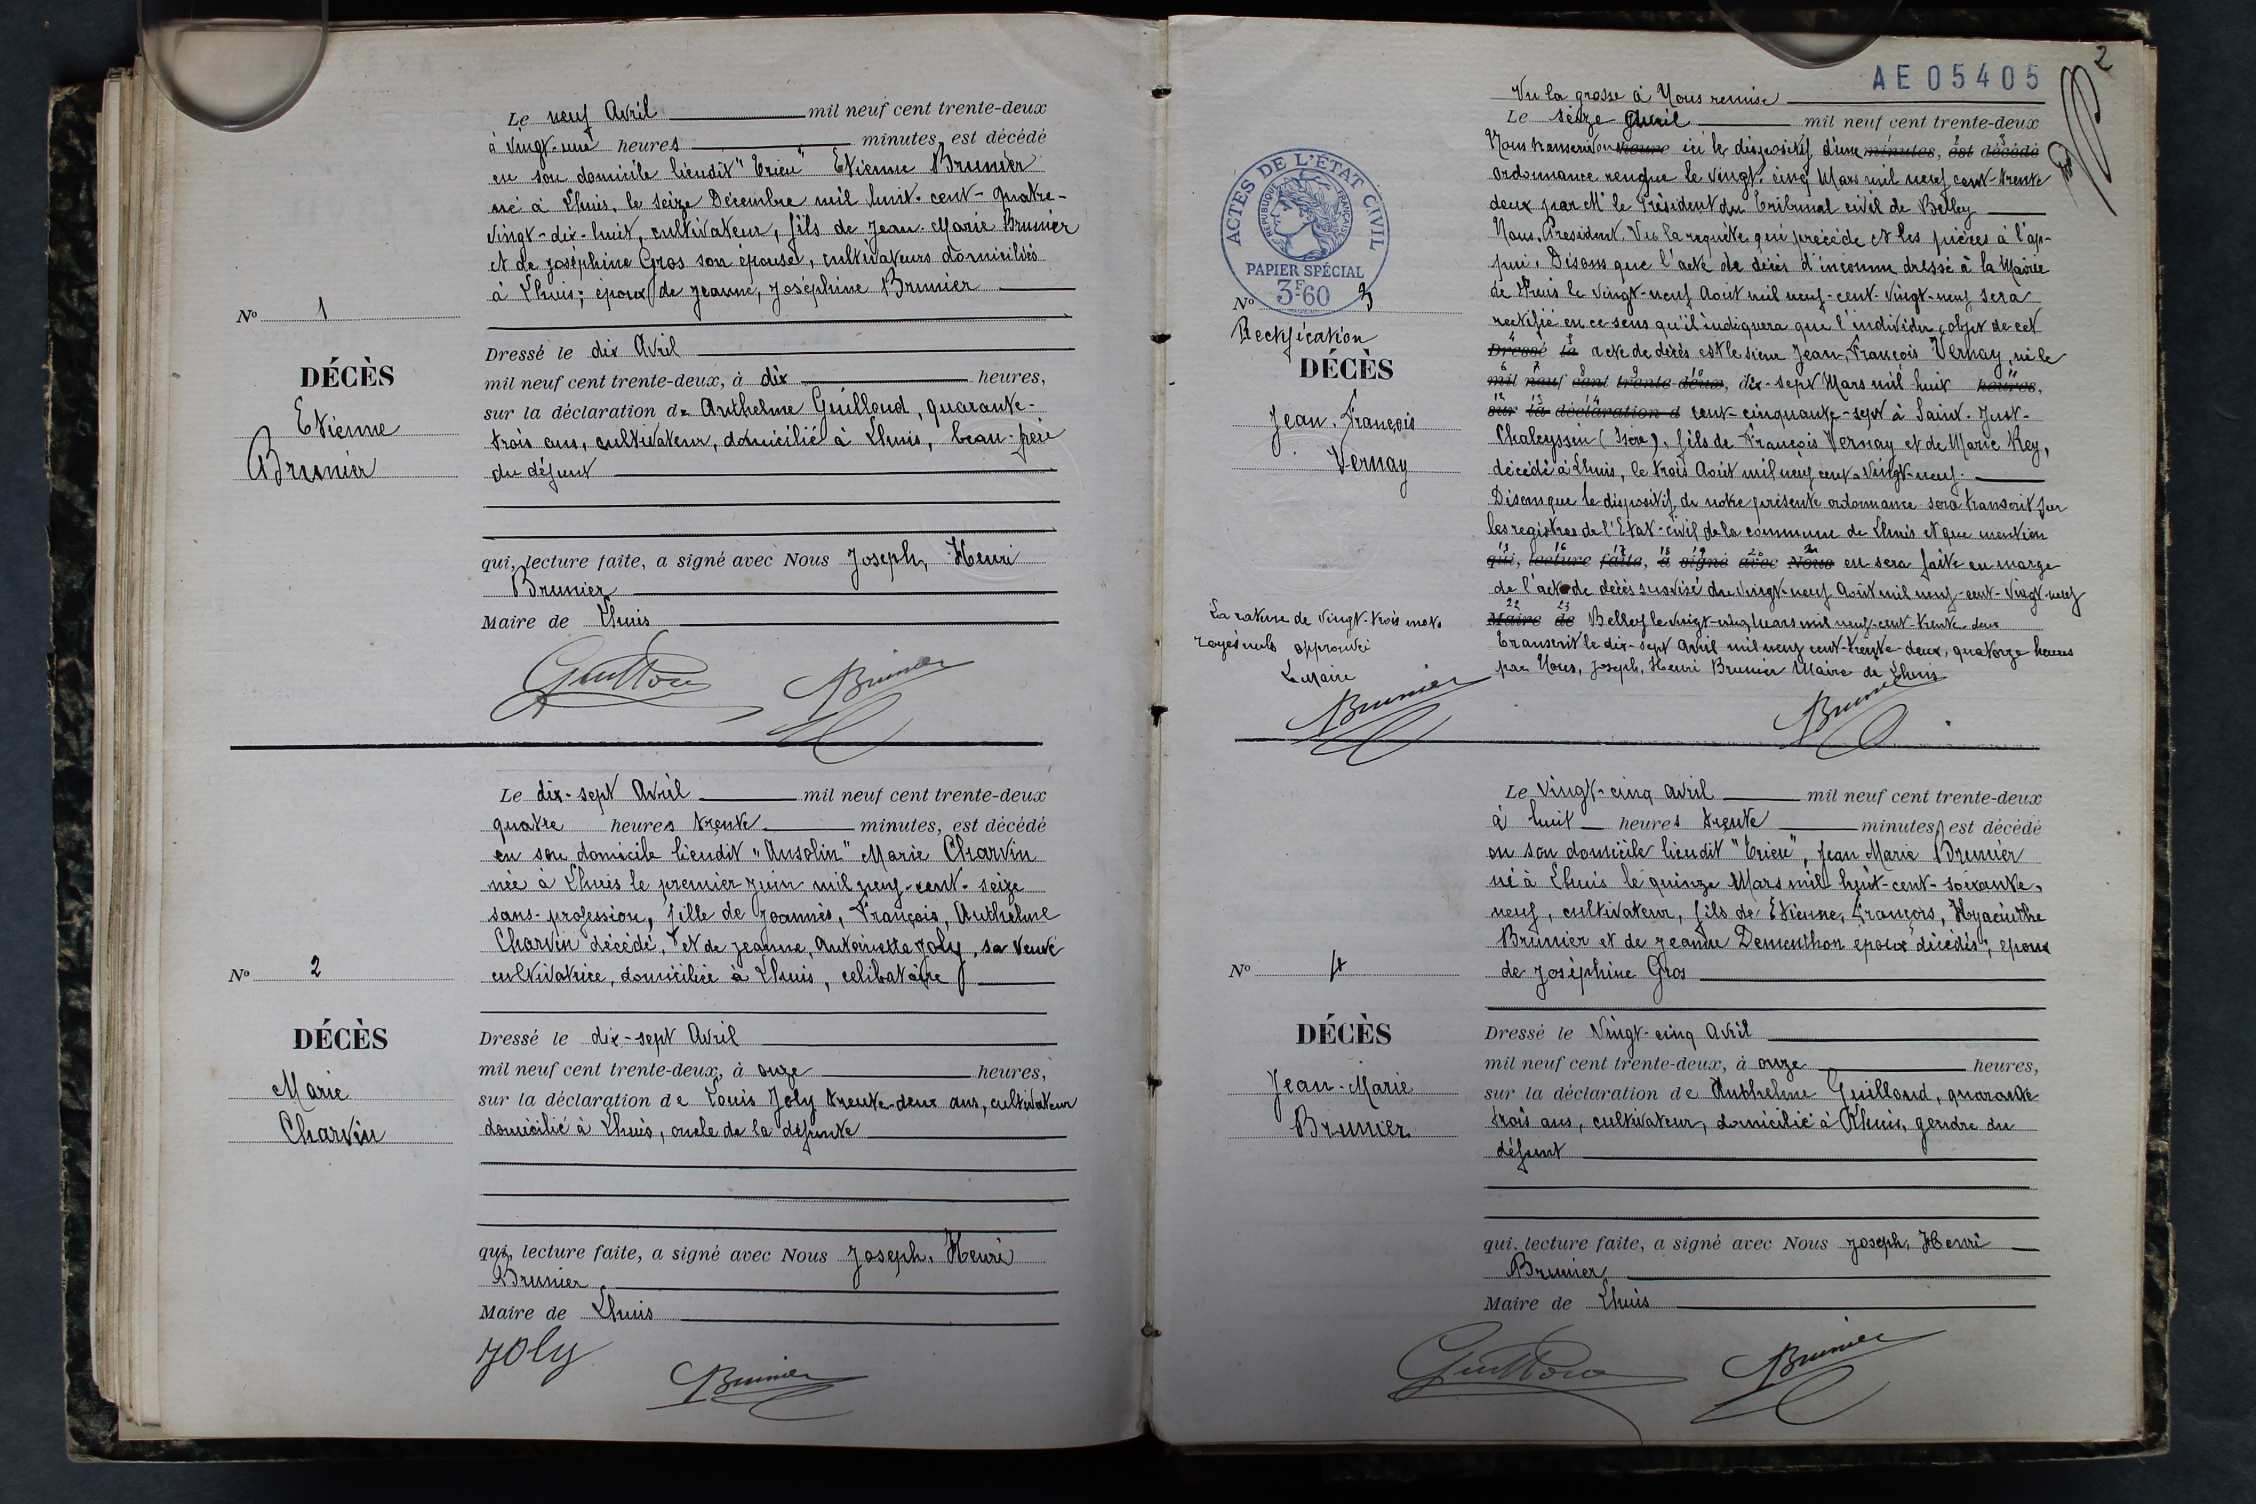 Le neuf Avril mil neuf cent trente-deux
à vingt-une heures minutes, est décédé
en son domicile lieudit "Crieu" Etienne Brunier
né à Lhuis, le seize Décembre mil huit-cent-quatre-
vingt-dix-huit, cultivateur, fils de Jean-Marie Brunier
et de Joséphine Gros son épouse, cultivateurs domiciliés
à Lhuis; époux de Jeanne, Joséphine Brunier
No 1
DÉCÈS
Etienne
Brunier
Dressé le dix Avril
mil neuf cent trente-deux, à dix heures,
sur la déclaration de Anthelme Guilloud, quarante-
trois ans, cultivateur, domicilié à Lhuis, beau-père
du défunt
qui, lecture faite, a signé avec Nous Joseph, Henri
Brunier
Maire de Lhuis
Guilloud Brunier
Le dix-sept Avril mil neuf cent trente-deux
quatre heures trente minutes, est décédé
en son domicile lieudit "Ansolin" Marie Charvin
née à Lhuis le premier Juin mil neuf-cent-seize
sans-profession, fille de Joannès, François, Anthelme
Charvin décédé, et de Jeanne, Antoinette Joly, sa veuve
cultivatrice, domiciliée à Lhuis, célibataire
No 2
DÉCÈS
Marie
Charvin
Dressé le dix-sept Avril
mil neuf cent trente-deux, à onze heures,
sur la déclaration de Louis Joly trente-deux ans, cultivateur
domicilié à Lhuis, oncle de la défunte
qui, lecture faite, a signé avec Nous Joseph, Henri
Brunier
Maire de Lhuis
Joly
Brunier
2
AE05405
Vu la grosse à Nous remise
Le seize Avril mil neuf cent trente-deux
Nous transcrivons heure ici le dispositif d'une minutes, est décédé
ordonnance rendue le vingt-cinq Mars mil neuf cent-trente
deux par Mr le Président du Tribunal civil de Belley
Nous, Président, Vu la requête qui précède et les pièces à l'ap-
pui. Disons que l'acte de décès d'inconnu dressé à la Mairie
de Lhuis le vingt-neuf Août mil neuf-cent-vingt-neuf sera
rectifié en ce sens qu'il indiquera que l'individu, objet de cet
Dressé le acte de décès est le sieur Jean, François Vernay, né le
mil neuf cent trente-deux, dix-sept Mars mil huit heures,
sur la déclaration d cent-cinquante-sept à Saint-Just-
Chaleyssin (Isère), fils de François Vernay et de Marie Rey,
décédé à Lhuis, le trois Août mil neuf cent-vingt-neuf.
Disons que le dispositif de notre présente ordonnance sera transcrit sur
les registres de l'Etat-civil de la commune de Lhuis et que mention
qui, lecture faite, a signé avec Nous en sera faite en marge
de l'acte de décès susvisé du vingt-neuf Août mil neuf-cent-vingt-neuf
Maire de Belley le vingt-cinq Mars mil neuf-cent-trente-deux
Transcrit le dix-sept Avril mil neuf cent-trente-deux, quatorze heures
par Nous, Joseph, Henri Brunier Maire de Lhuis
ACTES DE L'ÉTAT CIVIL
RÉPUBLIQUE FRANÇAISE
PAPIER SPÉCIAL
3F60
No 3
Rectification
DÉCÈS
Jean-François
Vernay
La rature de vingt-trois mots
rayés nuls approuvée
Le Maire
Brunier Brunier
Le vingt-cinq avril mil neuf cent trente-deux
à huit heures trente minutes, est décédé
en son domicile lieudit "Crieu", Jean Marie Brunier
né à Lhuis le quinze Mars mil-huit-cent-soixante-
neuf, cultivateur, fils de Etienne, François, Hyacinthe
Brunier et de Jeanne Dementhon époux décédés; époux
de Joséphine Gros
No 4
DÉCÈS
Jean-Marie
Brunier
Dressé le Vingt-cinq Avril
mil neuf cent trente-deux, à onze heures,
sur la déclaration de Anthelme Guilloud, quarante
trois ans, cultivateur, domicilié à Lhuis, gendre du
défunt
qui, lecture faite, a signé avec Nous Joseph, Henri
Brunier
Maire de Lhuis
Guilloud Brunier